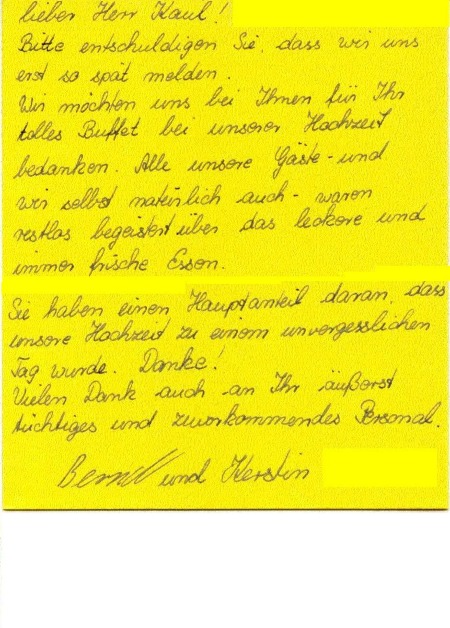 lieber Herr Kaul!
Bitte entschuldigen Sie, dass wir uns
erst so spät melden.
Wir möchten uns bei Ihnen für Ihr
tolles Buffet bei unserer Hochzeit
bedanken. Alle unsere Gäste - und
wir selbst natürlich auch - waren
restlos begeistert über das leckere und
immer frische Essen.
Sie haben einen Hauptanteil daran, dass
unsere Hochzeit zu einem unvergesslichen
Tag wurde. Danke!
Vielen Dank auch an Ihr äußerst
tüchtiges und zuvorkommendes Personal.
Bernd und Kerstin